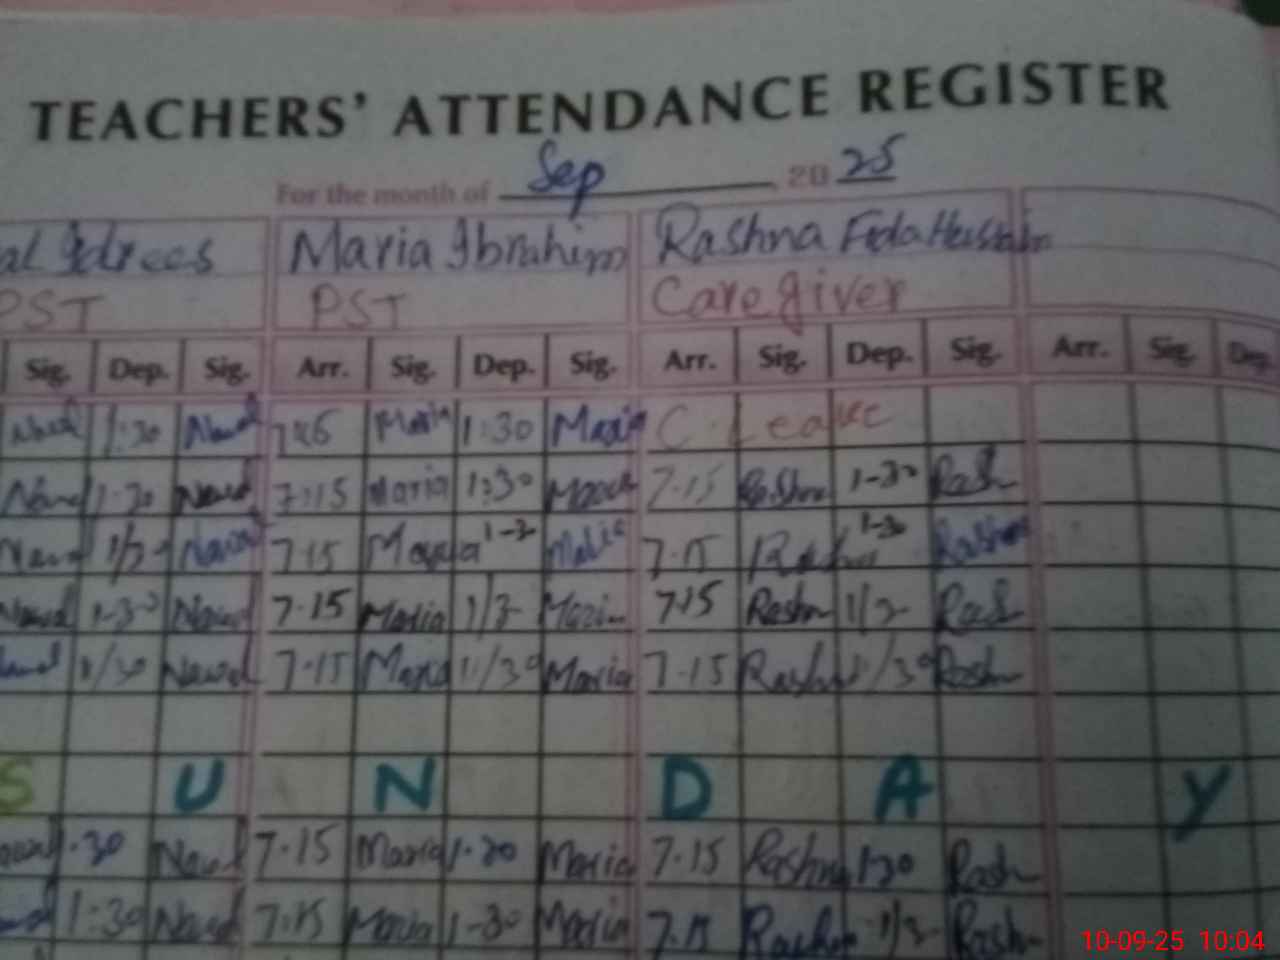 TEACHERS' ATTENDANCE REGISTER
For the month of Sep 2025
al Idrees Maria Ibrahim Rashna Fida Hussain
PST PST Caregiver
Sig. Dep. Sig. Arr. Sig. Dep. Sig. Arr. Sig. Dep. Sig. Arr. Sig. Dep.
1:30 Maria 1:30 Maria C. Leave
1-30 Nawal 7:15 Maria 1:30 7-15 Rashna 1-30 Rash
Nawal 7-15 Maria 7-15 Rashna 1-30 Rashna
Nawal 1-30 Nawal 7-15 Maria 1/3- Maria 7-15 Rashn 1/3- Rash
1/30 Nawal 7-15 Maria 1/30 Maria 7-15 Rashn 1/30 Rashn
S U N D A Y
1-30 Nawal 7-15 Maria 1-30 Maria 7-15 Rashna 1-30 Rash
1:30 Nawal 7:15 Maria 1-30 Maria 7-15 Rashn 1/3- Rash
10-09-25 10:04